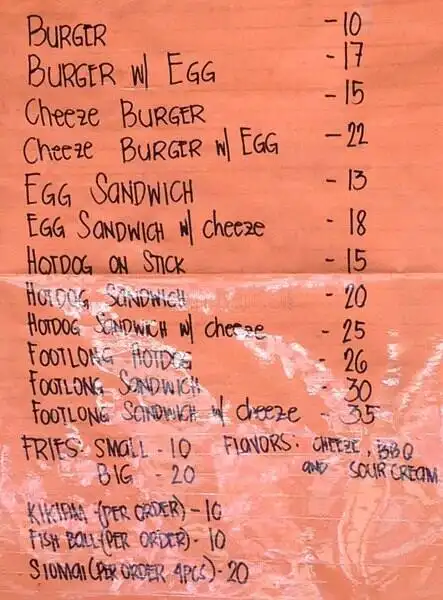 BURGER -10
BURGER w/ EGG -17
Cheeze BURGER -15
Cheeze BURGER w/ EGG -22
EGG SANDWICH - 13
EGG SANDWICH w/ cheeze - 18
HOTDOG ON STICK - 15
HOTDOG SANDWICH - 20
HOTDOG SANDWICH w/ cheeze - 25
FOOTLONG HOTDOG - 26
FOOTLONG SANDWICH - 30
FOOTLONG SANDWICH w/ cheeze - 35
FRIES: SMALL - 10 FLAVORS: CHEEZE, BBQ
BIG - 20 AND SOUR CREAM
KIKIAM -(PER ORDER) - 10
FISH BALL (PER ORDER) - 10
SIOMAI (PER ORDER 4PCS) - 20